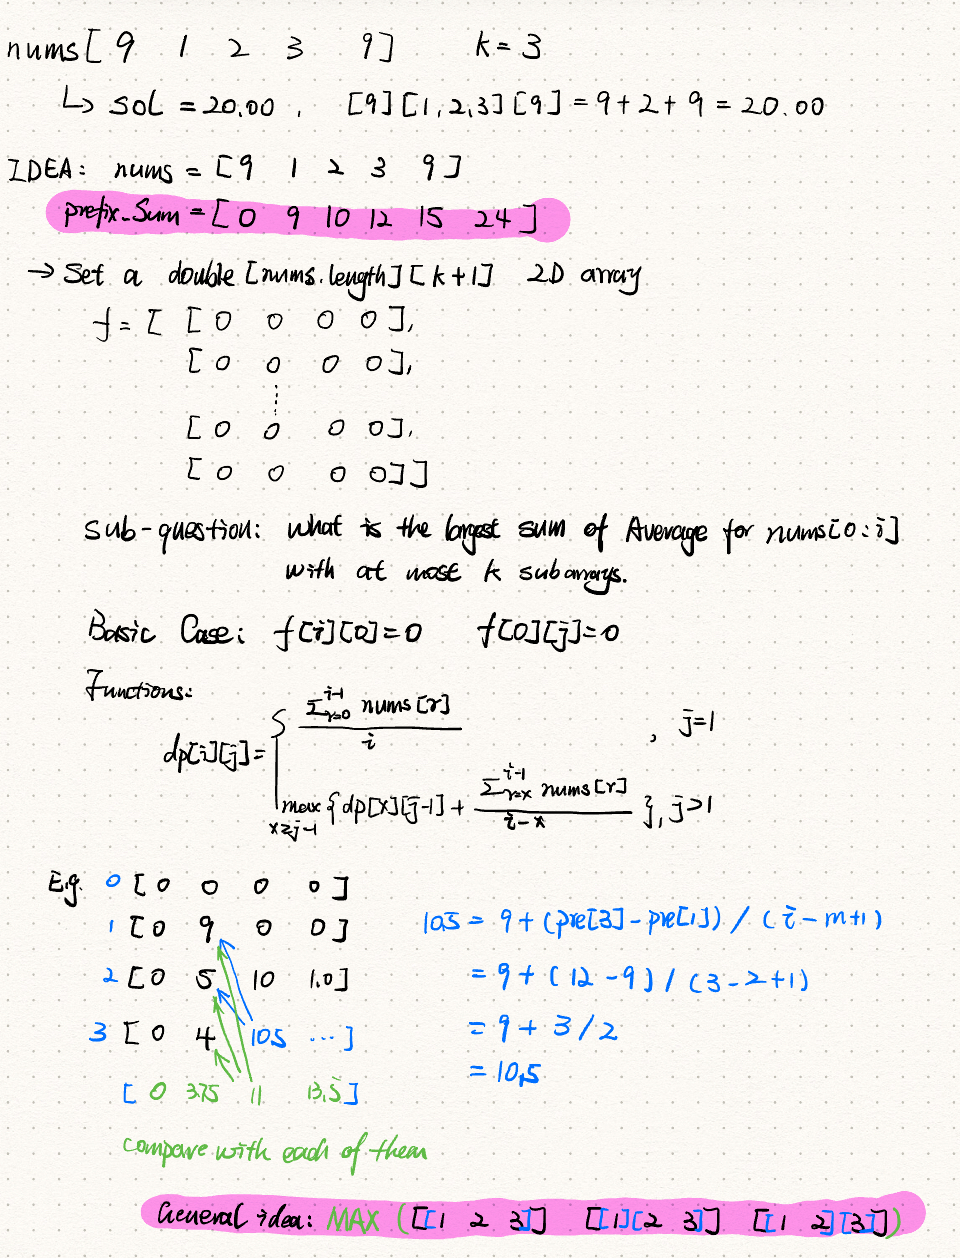 nums[ 9 1 2 3 9] k = 3
↳ sol = 20.00 , [9][1,2,3][9] = 9+2+9 = 20.00
IDEA: nums = [9 1 2 3 9]
prefix_Sum = [ 0 9 10 12 15 24 ]
→ Set a double [nums.length][k+1] 2D array
f = [ [ 0 0 0 0 ],
[ 0 0 0 0 ],
[ 0 0 0 0 ],
[ 0 0 0 0 ] ]
Sub-question: what is the largest sum of Average for nums[0:i]
with at most k subarrays.
Basic Case: f[i][0]=0 f[0][j]=0
Functions:
dp[i][j] = { Σ_{r=0}^{i-1} nums[r] / i , j=1
max_{x≥j-1} { dp[x][j-1] + Σ_{r=x}^{i-1} nums[r] / i-x }, j>1
E.g. 0 [ 0 0 0 0 ]
1 [ 0 9 0 0 ] 10.5 = 9 + (pre[3]-pre[1]) / (i-m+1)
2 [ 0 5 10 1.0 ] = 9 + (12-9) / (3-2+1)
3 [ 0 4 10.5 ... ] = 9 + 3/2
= 10.5
[ 0 3.75 11 13.5 ]
compare with each of them
General idea: MAX ([[1 2 3]] [[1][2 3]] [[1 2][3]])